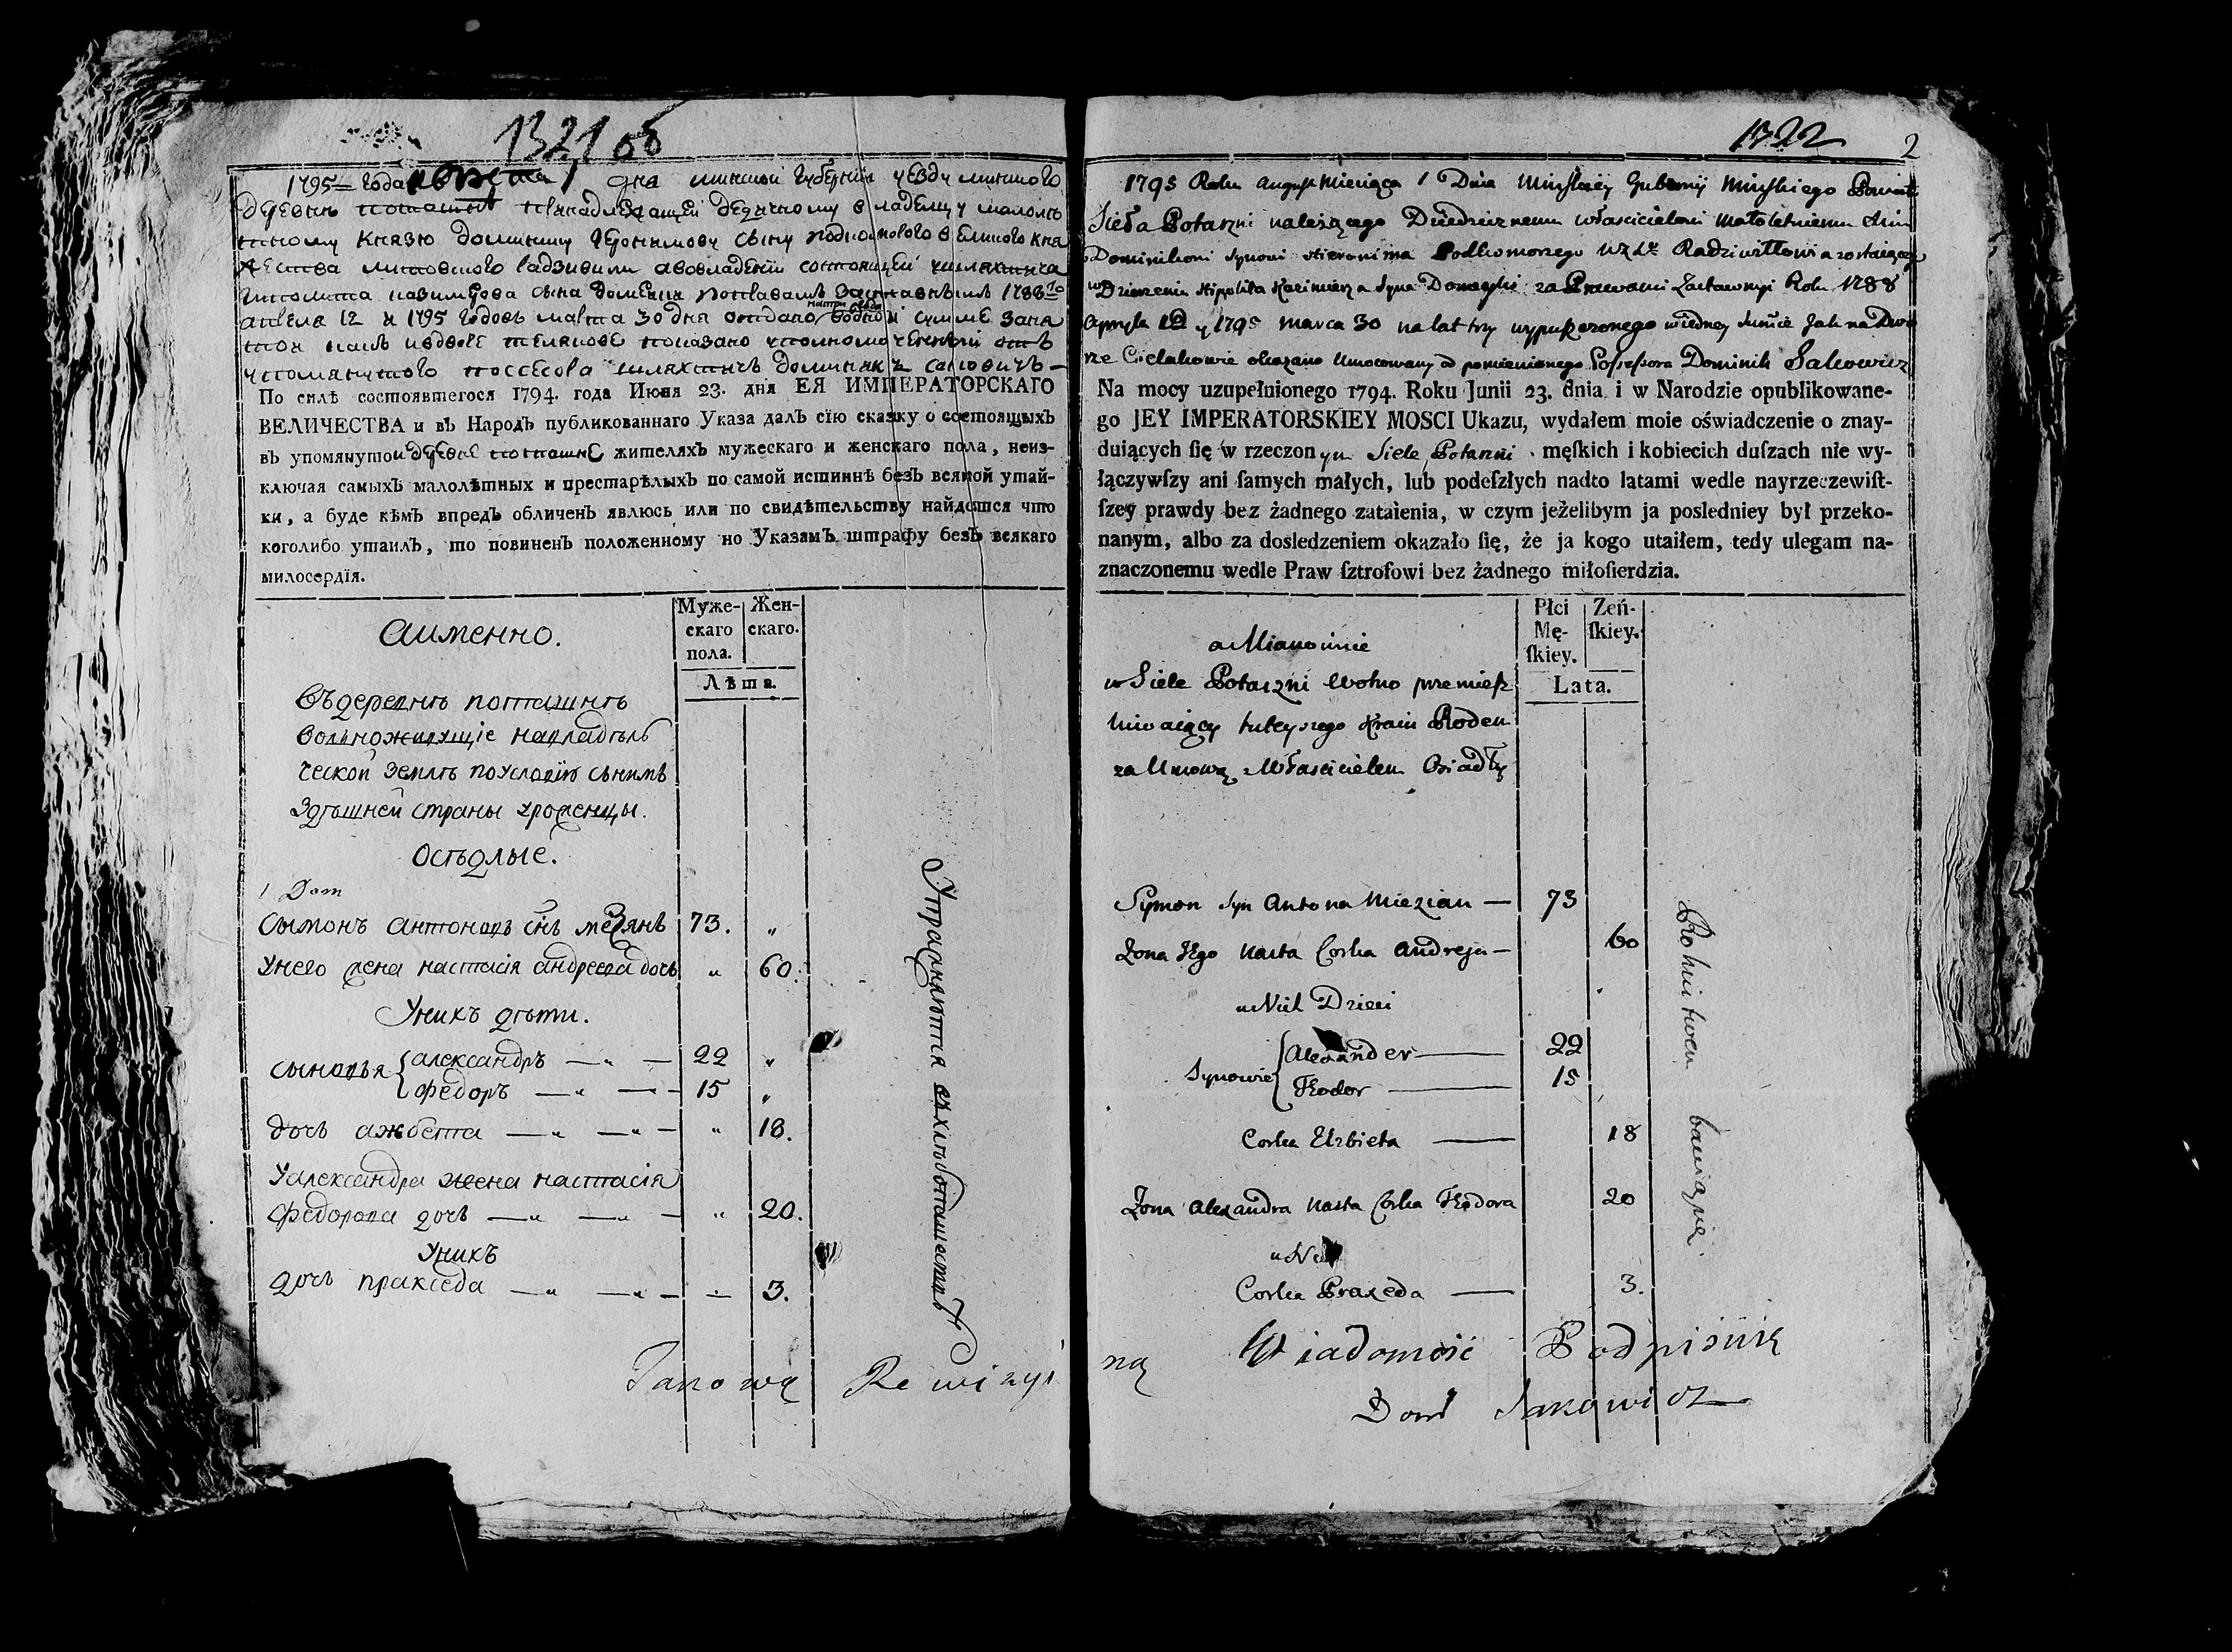 1321 об
1795 года августа 1 дня минской губернии уезду минского
деревни поташни принадлежащей дедичному владелцу малолет
ному князю доминику Геронимову сыну подкоморого великого кня
жества литовского радзивилу а во владении состоящей шляхтича
Ипполита казимерова сына домейки по правамъ заставнымъ 1788го
апреля 12 и 1795 годовъ марта 30 дня отдано на три года водной сумме зана
упомянутого поссесора шляхтичъ доминикъ саковичъ
По силѣ состоявшегося 1794. года Июня 23. дня ЕЯ ИМПЕРАТОРСКАГО
ВЕЛИЧЕСТВА и въ Народъ публикованнаго Указа далъ сїю сказку о состоящыхъ
въ упомянутой деревне поташне жителяхъ мужескаго и женскаго пола, неиз-
ключая самыхъ малолѣтных и престарѣлыхъ по самой истиннѣ безъ всякой утай-
ки, а буде кѣмъ впредъ обличенъ явлюсь или по свидѣтельству найдется что
коголибо утаилъ, то повиненъ положенному по Указамъ штрафу безъ всякаго
милосердїя.
аименно.
Муже-
скаго
пола.
Жен-
скаго.
Лѣта.
Въ деревнѣ поташнѣ
вольноживущіе навладѣль
ческой землѣ поусловію снимъ
здѣшней страны уроженцы.
Осѣдлые.
1 Dom
Сымонъ антоновъ снъ мезянъ 73. „
Унего жена настасія андреева дочь „ 60.
Унихъ дѣти.
сыновья { александръ — „ — 22 „
федоръ — „ — 15 „
дочь ажбета — „ — „ — „ 18.
Уалександра жена настасія
федорова дочь — „ — „ — „ 20.
Унихъ
дочь пракседа — „ — „ — „ 3.
Упражняются вхлѣбопашествѣ
Takową Rewizyi
1322
2
1795 Roku August Miesiąca 1 Dnia Mińskiey Gubernij Mińskiego Powiatu
Sieła Potaszni należącego Dziedzicznemu właścicielowi Małoletniemu
Dominikowi Synowi Hieronima Podkomorzego W X Lo Radziwiłłowi a zostaiącey
w Dzierżeniu Hippolita Kazimierza Syna Domeyki za Prawami Zastawnymi Roku 1788
Apryla 12 y 1795 Marca 30 na lat trzy wypuszczonego w iedney Summie Jak na Dwo
rze Cielakowie okazano Umocowany od pomienionego Possessora Dominik Sakowicz
Na mocy uzupełnionego 1794. Roku Junii 23. dnia i w Narodzie opublikowane-
go JEY IMPERATORSKIEY MOSCI Ukazu, wydałem moie oświadczenie o znay-
duiących ſię w rzeczonym Siele Potaszni męſkich i kobiecich duſzach nie wy-
łączywſzy ani ſamych małych, lub podeſzłych nadto latami wedle nayrzeczewiſt-
ſzey prawdy bez żadnego zataienia, w czym jeżelibym ja posledniey był przeko-
nanym, albo za dosledzeniem okazało ſię, że ja kogo utaiłem, tedy ulegam na-
znaczonemu wedle Praw ſztroſowi bez żadnego miłoſierdzia.
a Mianowicie
Płci
Mę-
ſkiey.
Zeń-
ſkiey.
Lata.
w Siele Potaszni Wolno przemiesz
kiwaiący tuteyszego Kraiu Rodem
za Umową z Właścicielem Osiadły
Symon Syn Antona Miezian — 73
Żona Jego Nasta Corka Andreja — 60
u Nich Dzieci
Synowie { Alexander — 22
Theodor — 15
Corka Elzbieta — 18
Żona Alexandra Nasta Corka Theodora 20
u Nich
Corka Praxeda — 3.
Rolnictwem bawią się.
na Wiadomość Podpisuię
Domi Sakowicz